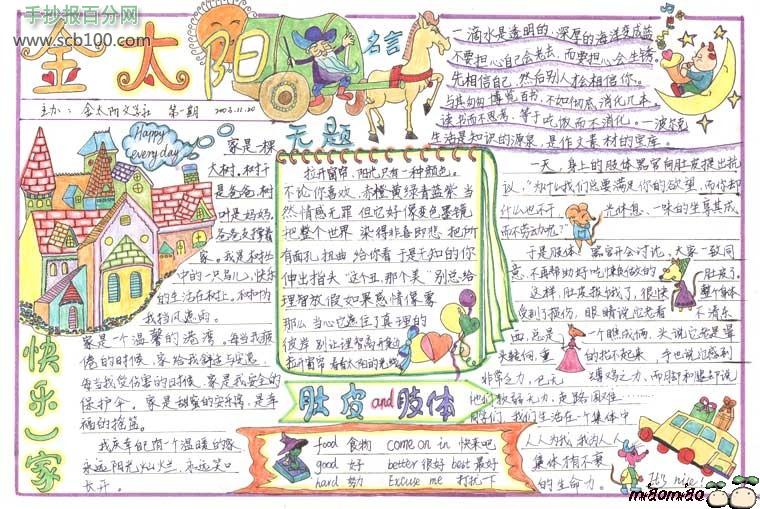 手抄报百分网
www.scb100.com
金太阳
主办：金太阳文学社 第一期 2003.11.20
名言
一滴水是透明的，深厚的海洋变成蓝
不要担心自己会老去，而要担心会生锈。
先相信自己，然后别人才会相信你。
读书而不思考，等于吃饭而不消化。—波尔克
生活是知识的源泉，是作文素材的宝库。
Happy everyday
快乐一家
家是一棵
大树，树干
是爸爸，树
叶是妈妈，
爸爸支撑着
家。我是树林
中的一只鸟儿，快乐
的生活在树上。树叶为
我挡风遮雨。
家是一个温馨的港湾。每当我疲
倦的时候，家给我舒适与优逸。
每当我受伤害的时候，家是我安全的
保护伞。家是甜蜜的安乐窝，是幸
福的摇篮。
我庆幸自己有个温暖的家，
永远阳光灿烂，永远笑口
长开。
无题
拉开窗帘，阳光只有一种颜色。
不论你喜欢，赤橙黄绿青蓝紫 当
然情感无罪 但它好像变色墨镜
把整个世界 染得非喜即悲 把所
有面孔 扭曲 给你看 于是无知的你
伸出指头 “这个丑，那个美” 别总给
理智放假 如果感情像雾
那么 当心它遮住了真理的
彼岸 别让理智离开
拉开窗帘 看看太阳的光线
肚皮and肢体
food 食物 come on in 快来吧
good 好 better 很好 best 最好
hard 努力 Excuse me 打扰下
一天，身上的肢体器官向肚皮提出抗
议，“为什么我们总要满足你的欲望，而你却
什么也不干，光休想，一味的坐享其成，
而不劳动呢？”
于是肢体器官开会讨论，大家一致同
意，不再帮助好吃懒做的肚皮了。
这样，肚皮报饿了，很快整个身体
受到了损伤，眼睛说它老看不清东
西，总是一个瞧成俩，头说它老是晕
头转向，重的抬不起来，手也说它感到
非常乏力，已无缚鸡之力，而脚和腿却说
他们软弱无力，走路困难……
同学们，我们生活在个集体中
人人为我，我为人人
集体才有不衰
的生命力。
It's nice!
miaomiao